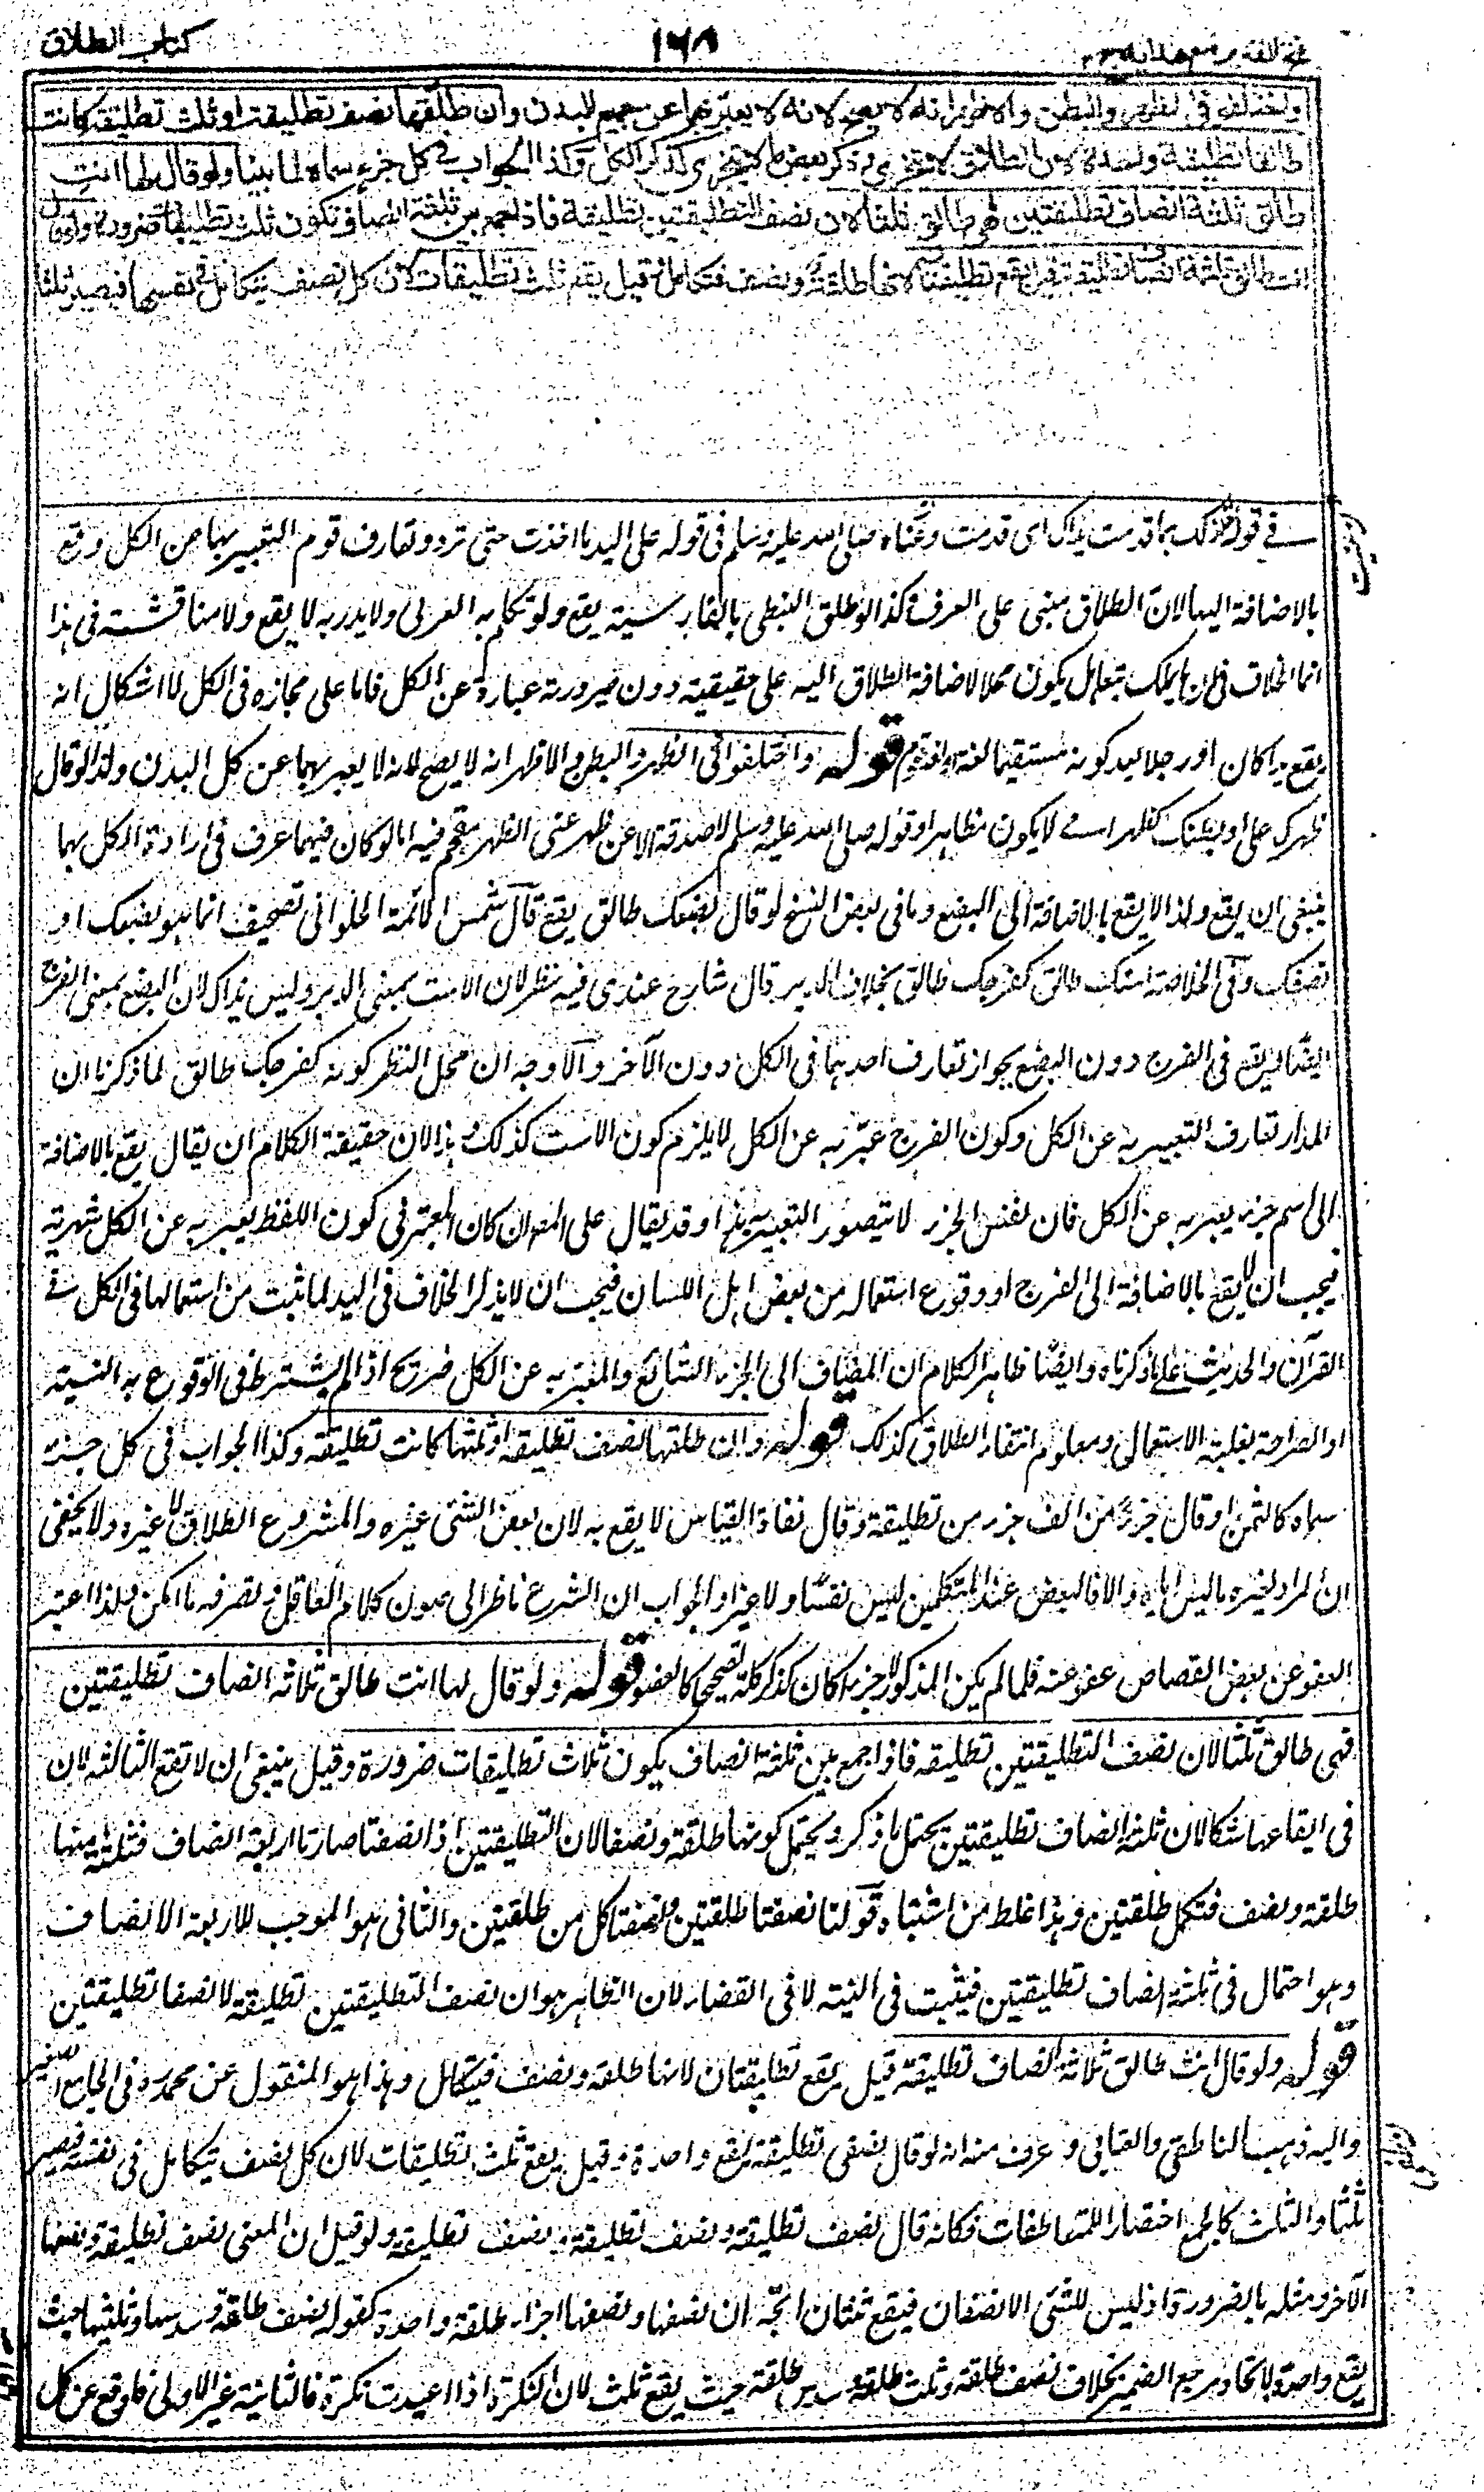 فتح القدير مع هدايه ج ٢
١٦٨
كتاب الطلاق
واختلفوا في الظهر والبطن والاظهر انه لا يصح لانه لا يعبر بهما عن جميع البدن وان طلقها نصف تطليقة او ثلث تطليقة كانت
طالقا تطليقة واحدة لان الطلاق لا يتجزى وذكر بعض ما لا يتجزى كذكر الكل وكذا الجواب في كل جزء سماه لما بينا ولو قال لها انت
طالق ثلثة انصاف تطليقتين فهي طالق ثلثا لان نصف التطليقتين تطليقة فاذا جمع بين ثلثة انصاف تكون ثلث تطليقات ضرورة ولو قال
انت طالق ثلثة انصاف تطليقة قيل يقع تطليقتان لانها طلقة ونصف فتتكامل وقيل يقع ثلث تطليقات لان كل نصف يتكامل في نفسها فيصير ثلثا
في قوله ذلك بما قدمت يداك اى قدمت وعناه صلى الله عليه وسلم فى قوله على اليد ما اخذت حتى ترد وتعارف قوم التعبير بها عن الكل وقع
بالاضافة اليها لان الطلاق مبنى على العرف ولذا لو طلق النبطى بالفارسية يقع ولو تكلم به العربى ولا يدريه لا يقع ولا مناقشة فى هذا
انما الخلاف فى ان ما يملك تبعا هل يكون محلا لاضافة الطلاق اليه على حقيقته دون صيرورته عبارة عن الكل فاما على مجازه فى الكل لا اشكال انه
يقع يدا كان او رجلا بعد كونه مستقيما لغة او لغة قوم قوله واختلفوا فى الظهر والبطن والاظهر انه لا يصح لانه لا يعبر بهما عن كل البدن ولذا لو قال
ظهرك على او بطنك كظهر امى لا يكون مظاهرا وقوله صلى الله عليه وسلم لا صدقة الا عن ظهر غنى الظهر مقحم فيه اما لو كان فيهما عرف فى ارادة الكل بهما
ينبغى ان يقع ولذا لا يقع بالاضافة الى البضع وما فى بعض النسخ لو قال بضعك طالق يقع قال شمس الائمة الحلوانى تصحيف انما هو بعضك او
نصفك وفى الخلاصة استك طالق كفرجك طالق بخلاف الدبر قال شارح عندى فيه نظر لان الاست بمعنى الدبر وليس بذاك لان البضع بمعنى الفرج
ايضا ليقع فى الفرج دون البضع لجواز تعارف احدهما فى الكل دون الآخر والاوجه ان محل النظر كونه كفرجك طالق لما ذكرنا ان
المدار تعارف التعبير به عن الكل وكون الفرج عبر به عن الكل لا يلزم كون الاست كذلك وهذا لان حقيقة الكلام ان يقال يقع بالاضافة
الى اسم جزء يعبر به عن الكل فان نفس الجزء لا يتصور التعبير به هذا وقد يقال على المصر ان كان المعتبر فى كون اللفظ يعبر به عن الكل شهرته
فيجب ان لا يقع بالاضافة الى الفرج او وقوع استعماله من بعض اهل اللسان فيجب ان لا يذكر الخلاف فى اليد لما ثبت من استعمالها فى الكل فى
القرآن والحديث على ما ذكرناه وايضا ظاهر الكلام ان المضاف الى الجزء الشائع والمعبر به عن الكل صريح اذ لم يشترط فى الوقوع به النية
او الصراحة بغلبة الاستعمال ومعلوم انتفاء الطلاق كذلك قوله وان طلقها نصف تطليقة او ثلثها كانت تطليقة وكذا الجواب فى كل جزء
سماه كالثمن او قال جزء من الف جزء من تطليقة وقال نفاة القياس لا يقع به لان بعض الشئ غيره والمشروع الطلاق لا غيره ولا يخفى
ان المراد بغيره ما ليس اياه والا فالبعض عند المتكلمين ليس نفسا ولا غيرا والجواب ان الشرع ناظر الى صون كلام العاقل وتصرفه ما امكن ولذا اعتبر
العفو عن بعض القصاص عفو عنه فلما لم يكن للمذكور جزء كان كذكر كله تصحيحا كالعفو قوله ولو قال لها انت طالق ثلاثة انصاف تطليقتين
فهى طالق ثلثا لان نصف التطليقتين تطليقه فاذا جمع بين ثلثة انصاف يكون ثلاث تطليقات ضرورة وقيل ينبغى ان لا تقع الثالثه لان
فى ايقاعها شكا لان ثلثة انصاف تطليقتين يحتمل ما ذكر ويحتمل كونها طلقة ونصفا لان التطليقتين اذا نصفتا صارتا اربعة انصاف فثلثة منها
طلقة ونصف فتكمل طلقتين وهذا غلط من اشتباه قولنا نصفتا طلقتين ونصفنا كل من طلقتين والثانى هو الموجب للاربعة الانصاف
وهو احتمال فى ثلثة انصاف تطليقتين فيثبت فى النية لا فى القضاء لان الظاهر هو ان نصف التطليقتين تطليقة لا نصفا تطليقتين
قوله ولو قال انت طالق ثلاثة انصاف تطليقة قيل يقع تطليقتان لانها طلقة ونصف فيتكامل وهذا هو المنقول عن محمد رح فى الجامع الصغير
واليه ذهب الناطفى والعتابى وعرف منه انه لو قال نصفى تطليقة يقع واحدة وقيل يقع ثلث تطليقات لان كل نصف يتكامل فى نفسه فيصير
ثلثا والثلث كالجمع اختصار المتعاطفات فكانه قال نصف تطليقة ونصف تطليقة ونصف تطليقة ولو قيل ان المعنى نصف تطليقة ونصفها
الآخر ومثله بالضرورة اذ ليس للشئ الا نصفان فيقع ثنتان اتجه ان نصفها ونصفها اجزاء طلقة واحدة كقوله نصف طلقة وسدسها وثلثها حيث
يقع واحدة لاتحاد مرجع الضمير بخلاف نصف طلقة وثلث طلقة وسدس طلقة حيث يقع ثلث لان النكرة اذا اعيدت نكرة فالثانية غير الاولى فاوقع عن كل